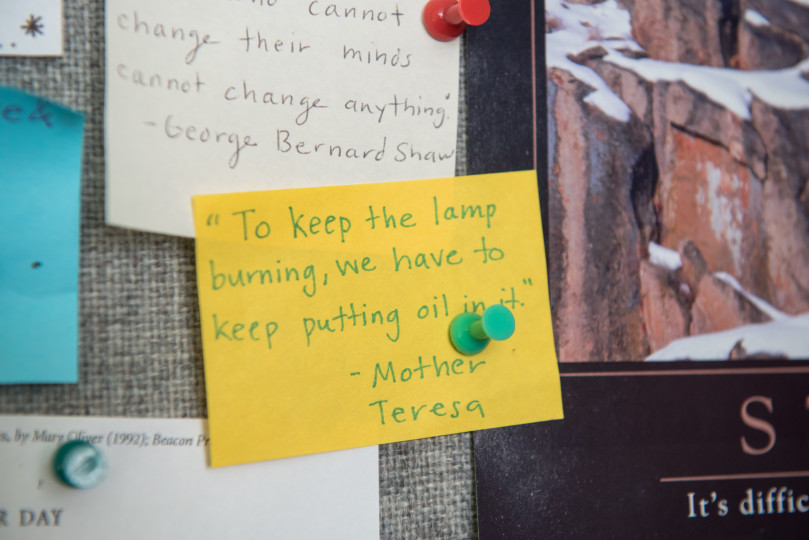 cannot
change their minds
cannot change anything."
-George Bernard Shaw
"To keep the lamp
burning, we have to
keep putting oil in it."
- Mother
Teresa
s, by Mary Oliver (1992); Beacon Pr
R DAY
S
It's diffic